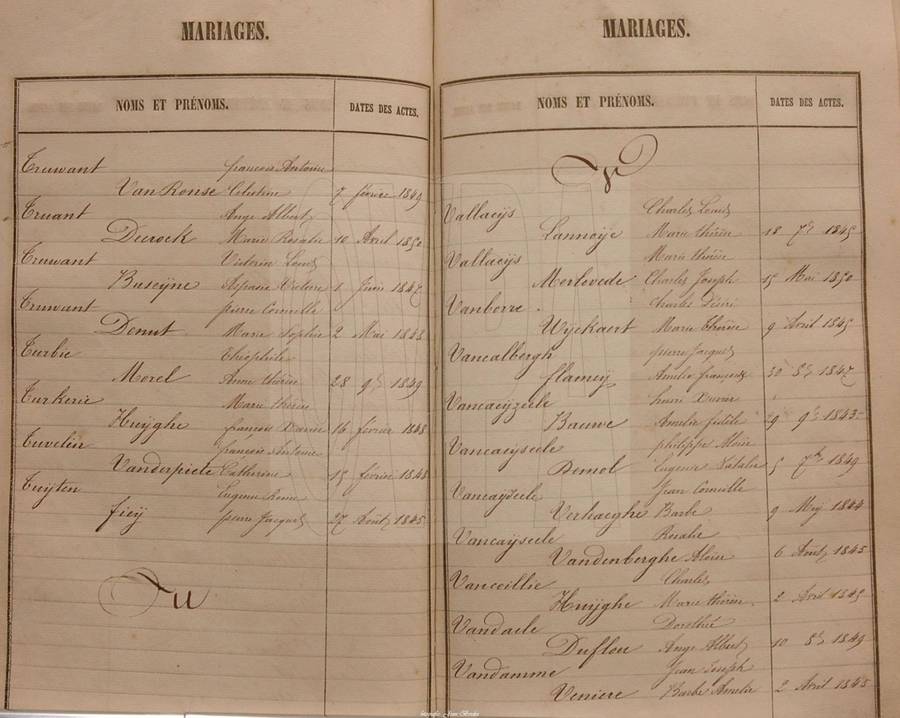 MARIAGES.
NOMS ET PRÉNOMS. DATES DES ACTES.
Truwant francois Antoine
Van Ronse Celestine 7 février 1849
Truant Ange Albert
Decrock Marie Rosalie 10 Avril 1850
Truwant Victorin Louis
Buseÿne 1 Juin 1847
Truwant pierre Corneille
Denut Marie Sophie 2 Mai 1843
Turbie Théophile
Morel Anne thérèse 28 9bre 1849
Turkerie Marie thérèse
Huÿghe francois Xavier 16 février 1848
Tuvelin francois Antoine
Vanderpiete Catherine 15 février 1848
Tuÿten Eugenie Reine
fieÿ pierre Jacques 27 Août 1845
U
MARIAGES.
NOMS ET PRÉNOMS. DATES DES ACTES.
V
Vallaeÿs Charles Louis
Lannoÿe Marie thérèse 18 7bre 1845
Vallaeÿs Marie thérèse
Merlevede Charles Joseph 15 Mai 1850
Vanborre Charles Désiré
Wÿckaert Marie thérèse 9 Avril 1845
Vancalbergh pierre Jacques
flameÿ Amelie francoise 30 8bre 1847
Vancaeÿzeele henri Xavier
Bauwe Amelie fidele 9 9bre 1843
Vancaeÿseele philippe Aloïse
Demol Eugenie Natalie 5 7bre 1849
Vancaÿseele Jean Corneille
Verhaeghe Barbe 9 Mÿ 1844
Vancaÿseele Rosalie
Vandenberghe Aloïse 6 Août 1845
Vanceillie Charles
Huÿghe Marie thérèse 2 Avril 1845
Vandaele Dorothée
Duflou Ange Albert 10 8bre 1849
Vandamme Jean Joseph
Veniere Barbe Amelie 2 Avril 1845